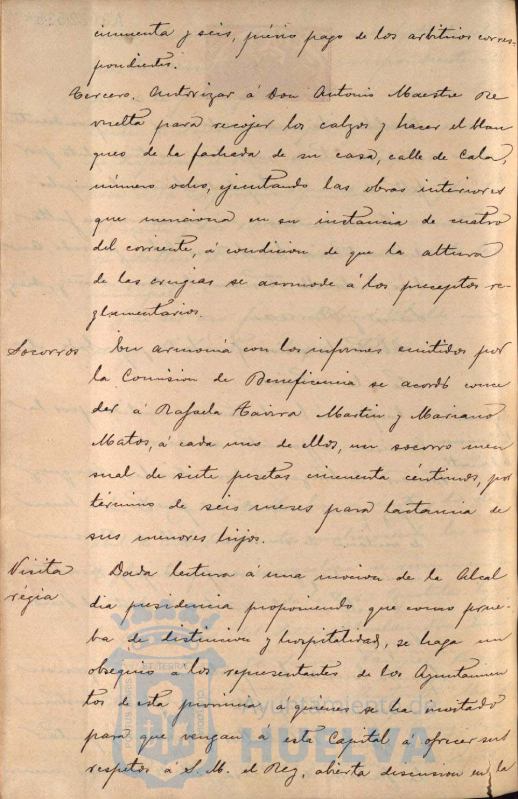 cincuenta y seis, prévio pago de los arbitrios corres-
pondientes.
Tercero. Autorizar á Don Antonio Maestre Re
vuelta para recojer los calzos y hacer el blan
queo de la fachada de su casa, calle de Cala,
número ocho, ejecutando las obras interiores
que menciona en su instancia de cuatro
del corriente, á condicion de que la altura
de las crugias se acomode á los preceptos re-
glamentarios.
Socorros En armonia con los informes emitidos por
la Comision de Beneficencia se acordó conce
der á Rafaela Tavira Martin y Mariano
Matos, á cada uno de ellos, un socorro men
sual de siete pesetas cincuenta céntimos, por
término de seis meses para lactancia de
sus menores hijos.
Visita Dada lectura á una mocion de la Alcal
régia dia presidencia proponiendo que como prue-
ba de distincion y hospitalidad, se haga un
obsequio a los representantes de los Ayuntamien
tos de esta provincia a quienes se ha invitado
para que vengan á esta Capital á ofrecer sus
respetos á S. M. el Rey, abierta discusion en la
PORTUS MARIS ET TERRAE CUSTODIA
Ayuntamiento de
HUELVA